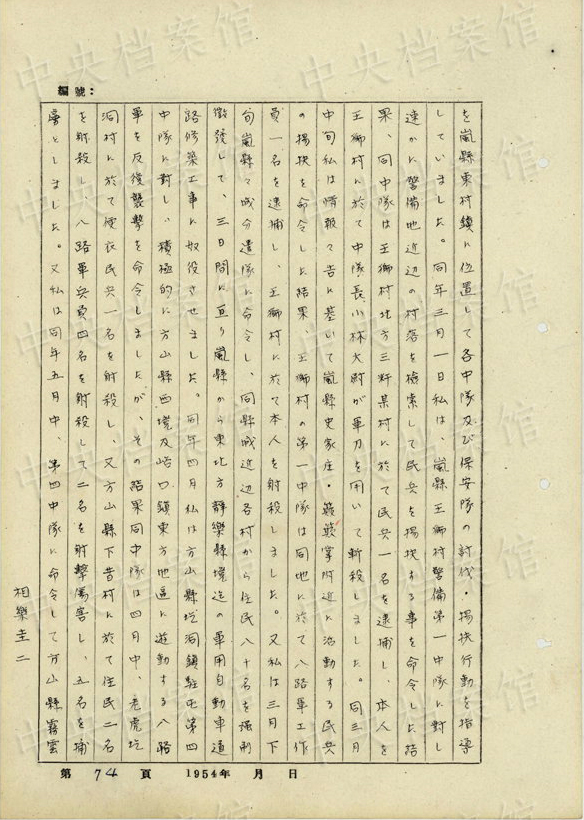 編號：
を嵐縣東村鎮に位置して各中隊及び保安隊の討伐・掃抉行動を指導
していました。同年三月一日私は、嵐縣王獅村警備第一中隊に対し
速かに警備地近辺の村落を検索して民兵を掃抉する事を命令した結
果、同中隊は王獅村北方三粁某村に於て民兵一名を逮捕し、本人を
王獅村に於て中隊長小林大尉が軍刀を用いて斬殺しました。同三月
中旬私は情報報告に基いて嵐縣史家庄・掌附近に活動する民兵
の掃抉を命令した結果、王獅村の第一中隊は同地に於て八路軍工作
員一名を逮捕し、王獅村に於て本人を射殺しました。又私は三月下
旬嵐縣々城分遣隊に命令し、同縣城近辺各村から住民八十名を強制
徴発して、三日間に亘り嵐縣から東北方静樂縣境迄の軍用自動車道
路修築工事に奴役させました。同年四月私は方山縣圪洞鎮駐屯第四
中隊に対し、積極的に方山縣西境及峪口鎮東方地區に遊動する八路
軍を反復襲撃を命令しましたが、その結果同中隊は四月中、老虎圪
洞村に於て便衣民兵一名を射殺し、又方山縣下昔村に於て住民二名
を射殺し、八路軍兵員四名を射殺して二名を射撃傷害し、五名を捕
虜としました。又私は同年五月中、第四中隊に命令して方山縣霧雲
相樂圭二
第 74 頁 1954年 月 日
中央档案馆